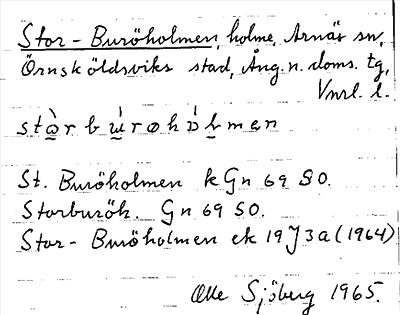 Stor-Buröholmen, holme, Arnäs sn,
Örnsköldsviks stad, Ång. n. doms. tg,
Vnrl. l.
St. Buröholmen kGn 69 SO.
Storburöh. Gn 69 SO.
Stor-Buröholmen ek 19J3a (1964)
Olle Sjöberg 1965.